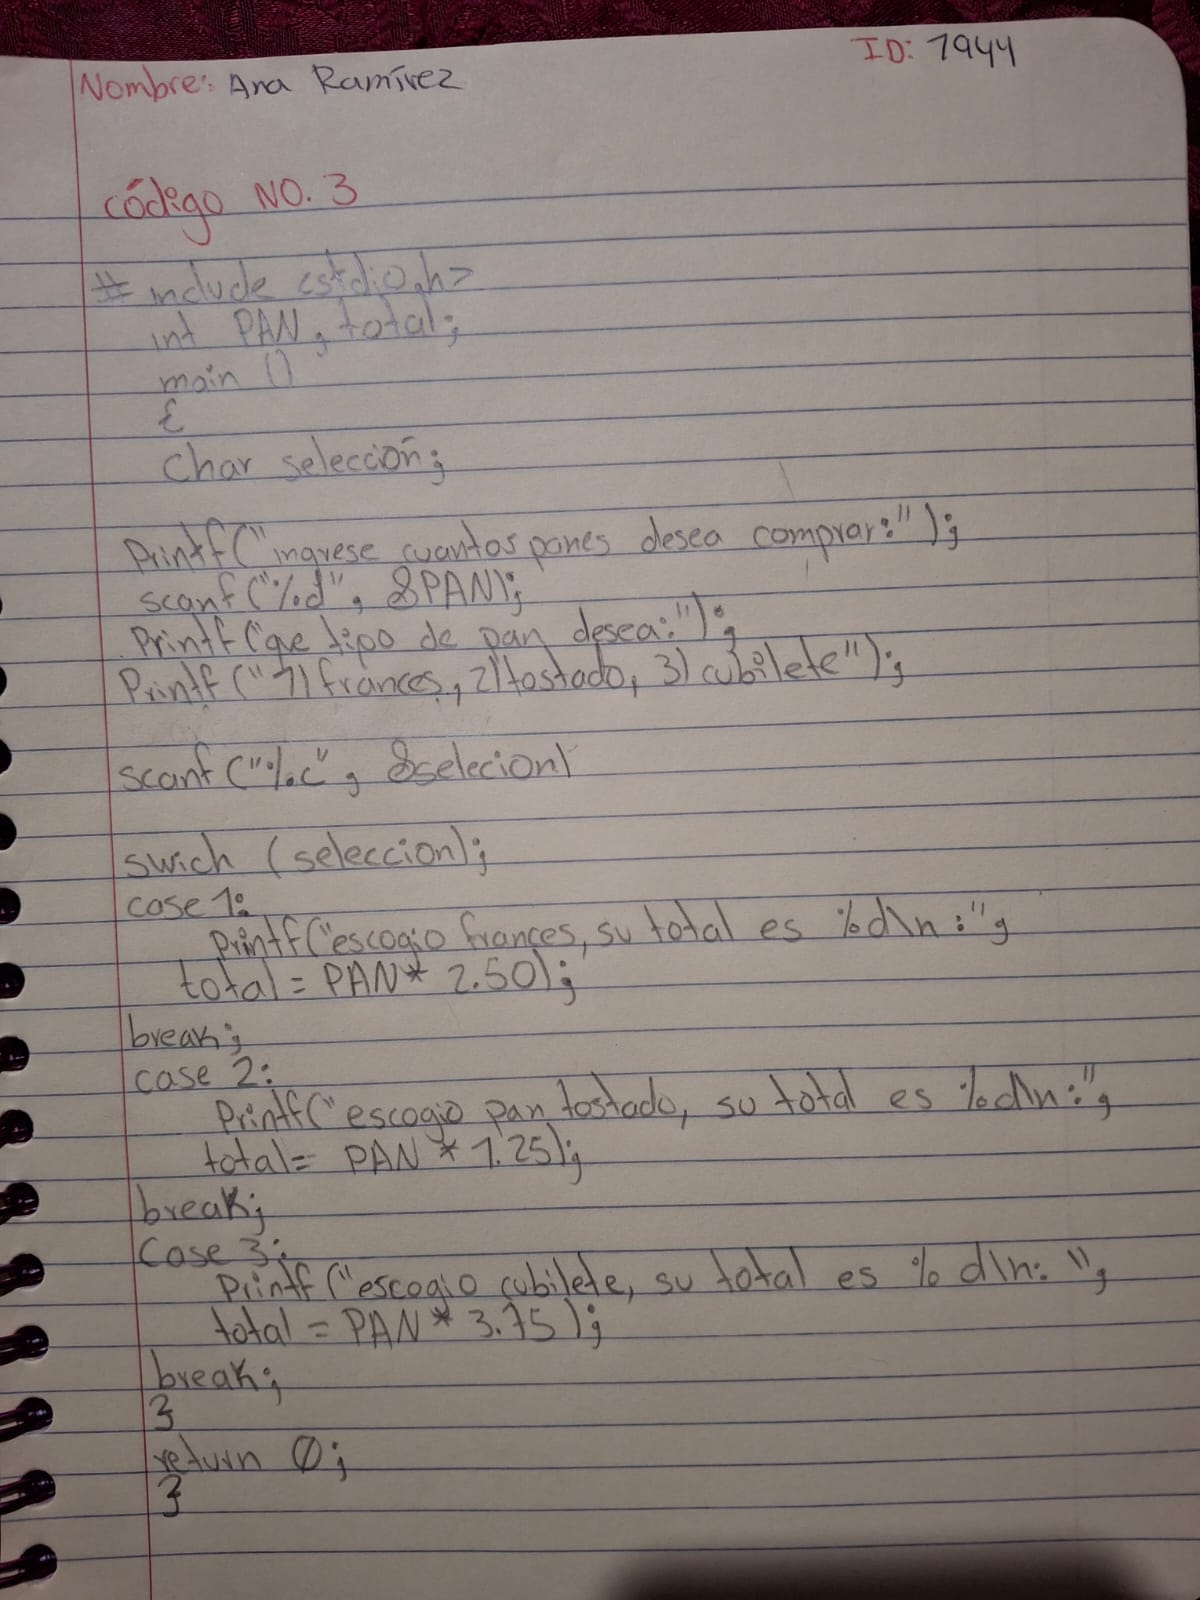 Nombre: Ana Ramírez
ID: 1944
código NO. 3
# include <stdio.h>
int PAN, total;
main ()
{
char selección;
Printf("ingrese cuantos panes desea comprar:");
scanf("%d", &PAN);
Printf("que tipo de pan desea:");
Printf ("1) frances, 2) tostado, 3) cubilete");
scanf ("%c", &selecion)
swich (seleccion);
case 1:
Printf("escogio frances, su total es %d\n:",
total = PAN* 2.50);
break;
case 2:
Printf("escogio pan tostado, su total es %d\n:",
total= PAN * 1.25);
break;
Case 3:
Printf ("escogio cubilete, su total es % d\n: ",
total = PAN * 3.75 );
break;
}
return 0;
}